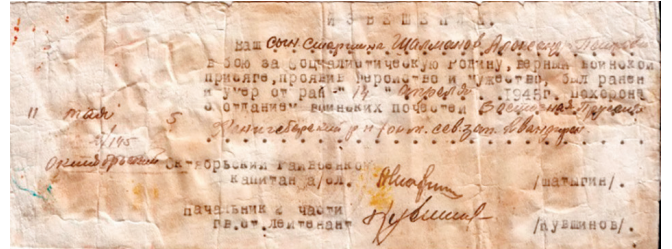 ИЗВЕЩЕНИЕ.
Ваш сын старшина Шалманов
в бою за социалистическую родину, верный воинской
присяге, проявив геройство и мужество, был ранен
и умер от ран "14" апреля 1945г. похорона
с отданием воинских почестей Восточная Пруссия
11 мая 5
Кенигсбергский р-н сев. зап.
Октябрьский Октябрьский райвоенком
капитан а/сл. /шатыгин/.
начальник 2 части
гв.ст.лейтенант /кувшинов/.